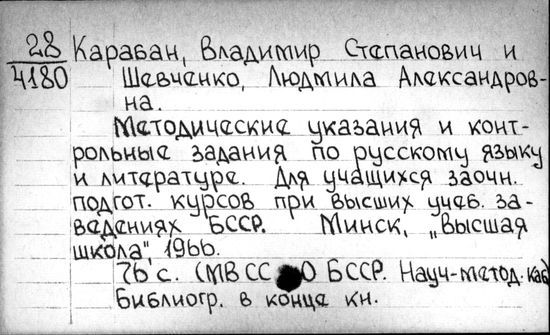 28
4180
Карабан, Владимир Степанович и
Шевченко, Людмила Александров-
на.
Методические указания и конт-
рольные задания по русскому языку
и литературе. Для учащихся заочн.
подгот. курсов при высших учеб. за-
ведениях БССР. Минск, „Высшая
школа", 1966.
76 с. (МВ ССО БССР. Науч-метод. каб)
Библиогр. в конце кн.